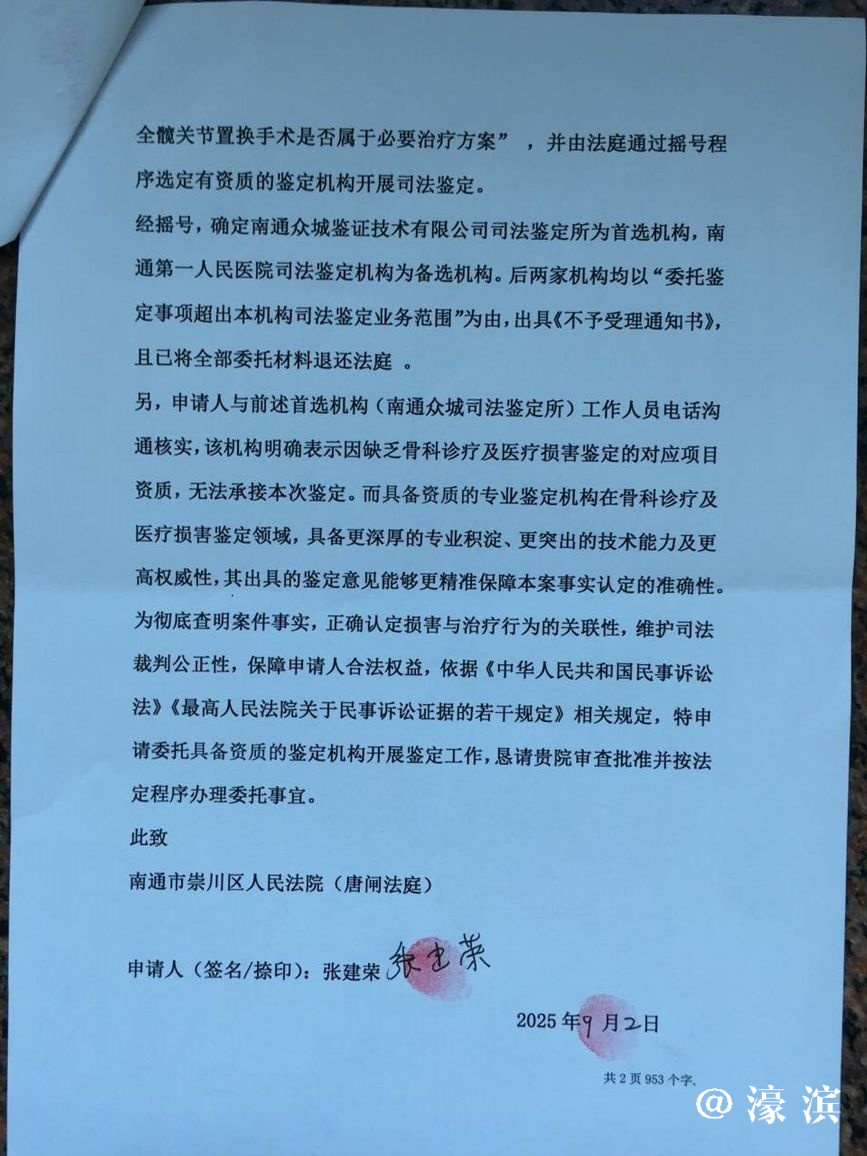 全髋关节置换手术是否属于必要治疗方案” ，并由法庭通过摇号程
序选定有资质的鉴定机构开展司法鉴定。
经摇号，确定南通众城鉴证技术有限公司司法鉴定所为首选机构，南
通第一人民医院司法鉴定机构为备选机构。后两家机构均以“委托鉴
定事项超出本机构司法鉴定业务范围”为由，出具《不予受理通知书》，
且已将全部委托材料退还法庭 。
另，申请人与前述首选机构（南通众城司法鉴定所）工作人员电话沟
通核实，该机构明确表示因缺乏骨科诊疗及医疗损害鉴定的对应项目
资质，无法承接本次鉴定。而具备资质的专业鉴定机构在骨科诊疗及
医疗损害鉴定领域，具备更深厚的专业积淀、更突出的技术能力及更
高权威性，其出具的鉴定意见能够更精准保障本案事实认定的准确性。
为彻底查明案件事实，正确认定损害与治疗行为的关联性，维护司法
裁判公正性，保障申请人合法权益，依据《中华人民共和国民事诉讼
法》《最高人民法院关于民事诉讼证据的若干规定》相关规定，特申
请委托具备资质的鉴定机构开展鉴定工作，恳请贵院审查批准并按法
定程序办理委托事宜。
此致
南通市崇川区人民法院（唐闸法庭）
申请人（签名/捺印）：张建荣 张建荣
2025 年9 月2日
共 2 页 953 个字.
@濠滨